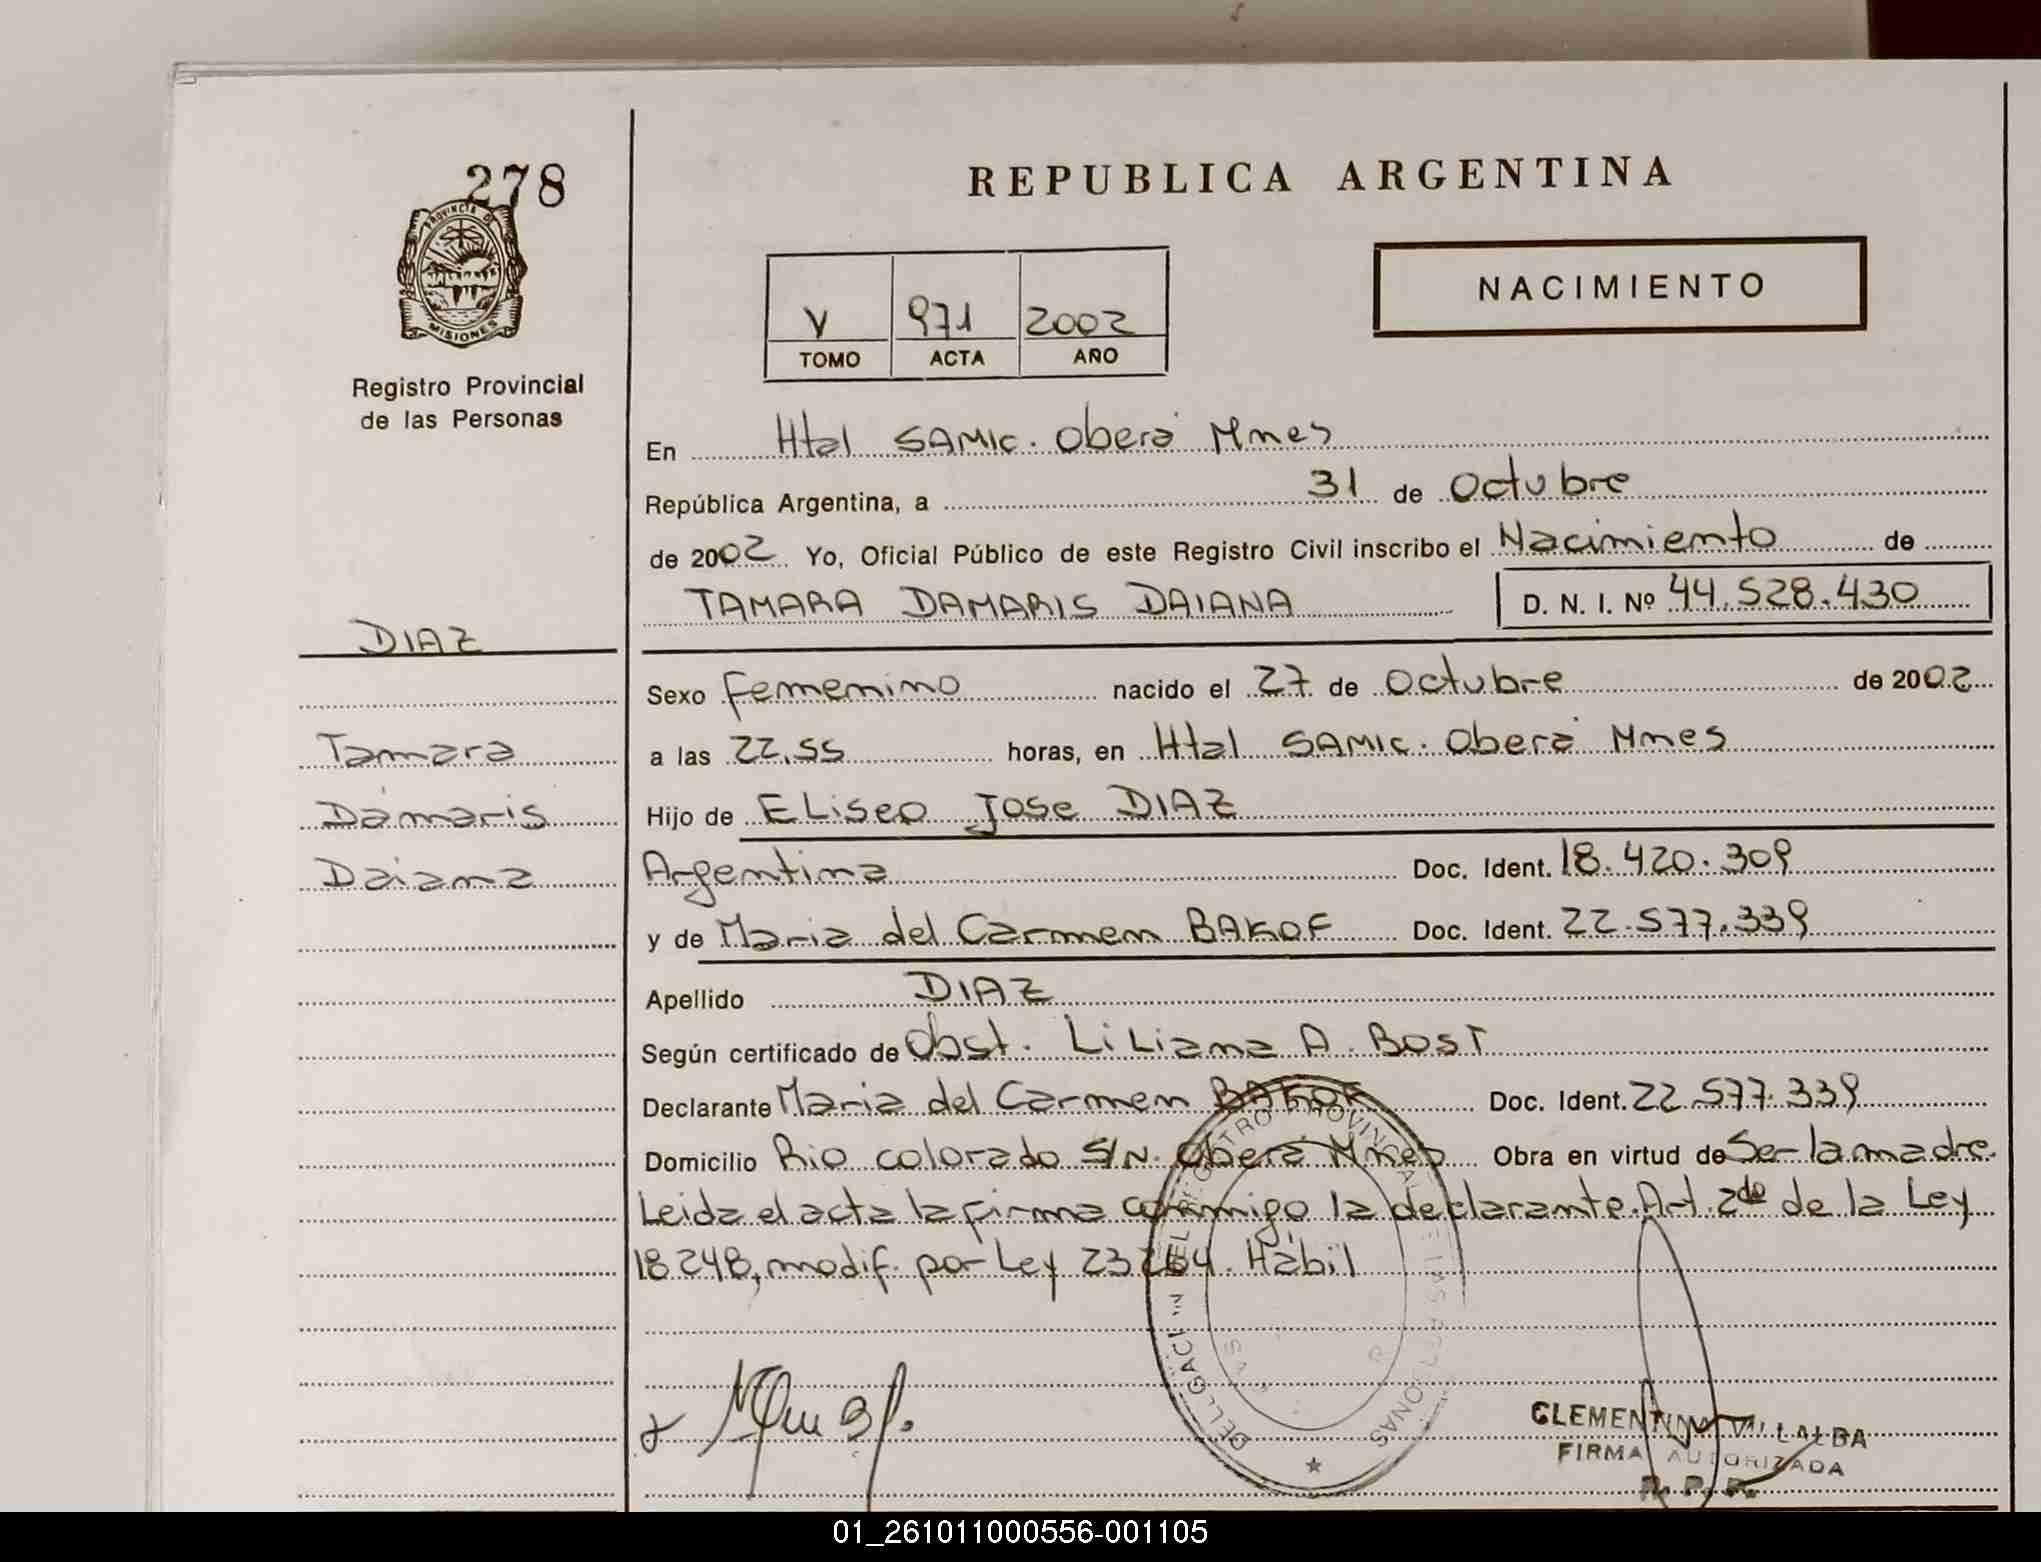 278
PROVINCIA DE
MISIONES
Registro Provincial
de las Personas
REPUBLICA ARGENTINA
NACIMIENTO
V 971 2002
TOMO ACTA AÑO
En Htal SAMIC. Oberá Mnes
República Argentina, a 31 de Octubre
de 2002 Yo, Oficial Público de este Registro Civil inscribo el Nacimiento de
TAMARA DAMARIS DAIANA D. N. I. Nº 44.528.430
DIAZ
Tamara
Dámaris
Daiana
Sexo femenino nacido el 27 de Octubre de 2002
a las 22.55 horas, en Htal SAMIC. Oberá Mnes
Hijo de Eliseo Jose DIAZ
Argentina Doc. Ident. 18.420.309
y de Maria del Carmen BAKOF Doc. Ident. 22.577.339
Apellido DIAZ
Según certificado de Obst. Liliana A. Bost
Declarante Maria del Carmen BAKOF Doc. Ident. 22.577.339
Domicilio Rio colorado S/N. Oberá Mnes Obra en virtud de Ser la madre.
Leida el acta la firma conmigo la declarante. Art. 2do de la Ley
18.248, modif. por Ley 23264. Hábil
CLEMENTINA VILLALBA
FIRMA AUTORIZADA
R. P. P.
01_261011000556-001105